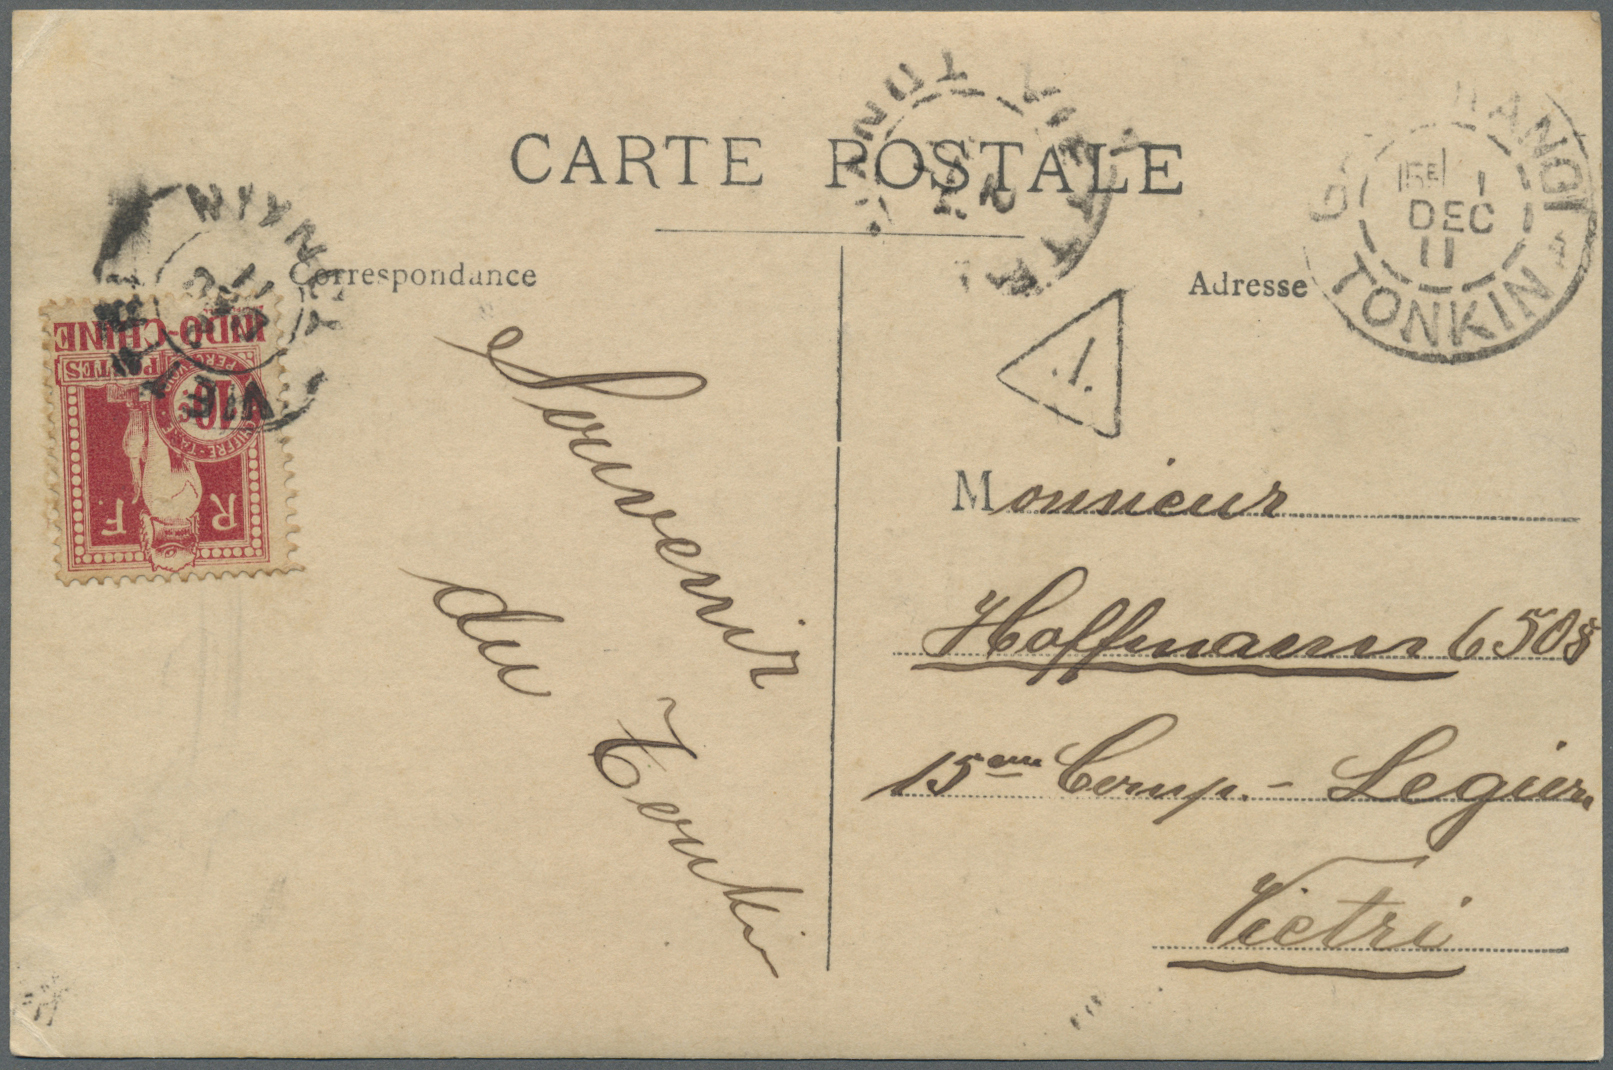 CARTE POSTALE
Correspondance
Adresse
Souvenir
du Tonkin
Monsieur
Hoffmann 6508
15eme Comp.- Legion
Vietri
.1.
5E 1
DEC
11
TONKIN
VIETRI
TONKIN
INDO-CHINE
POSTES
10
CHIFFRE-TAXE A PERCEVOIR
R F